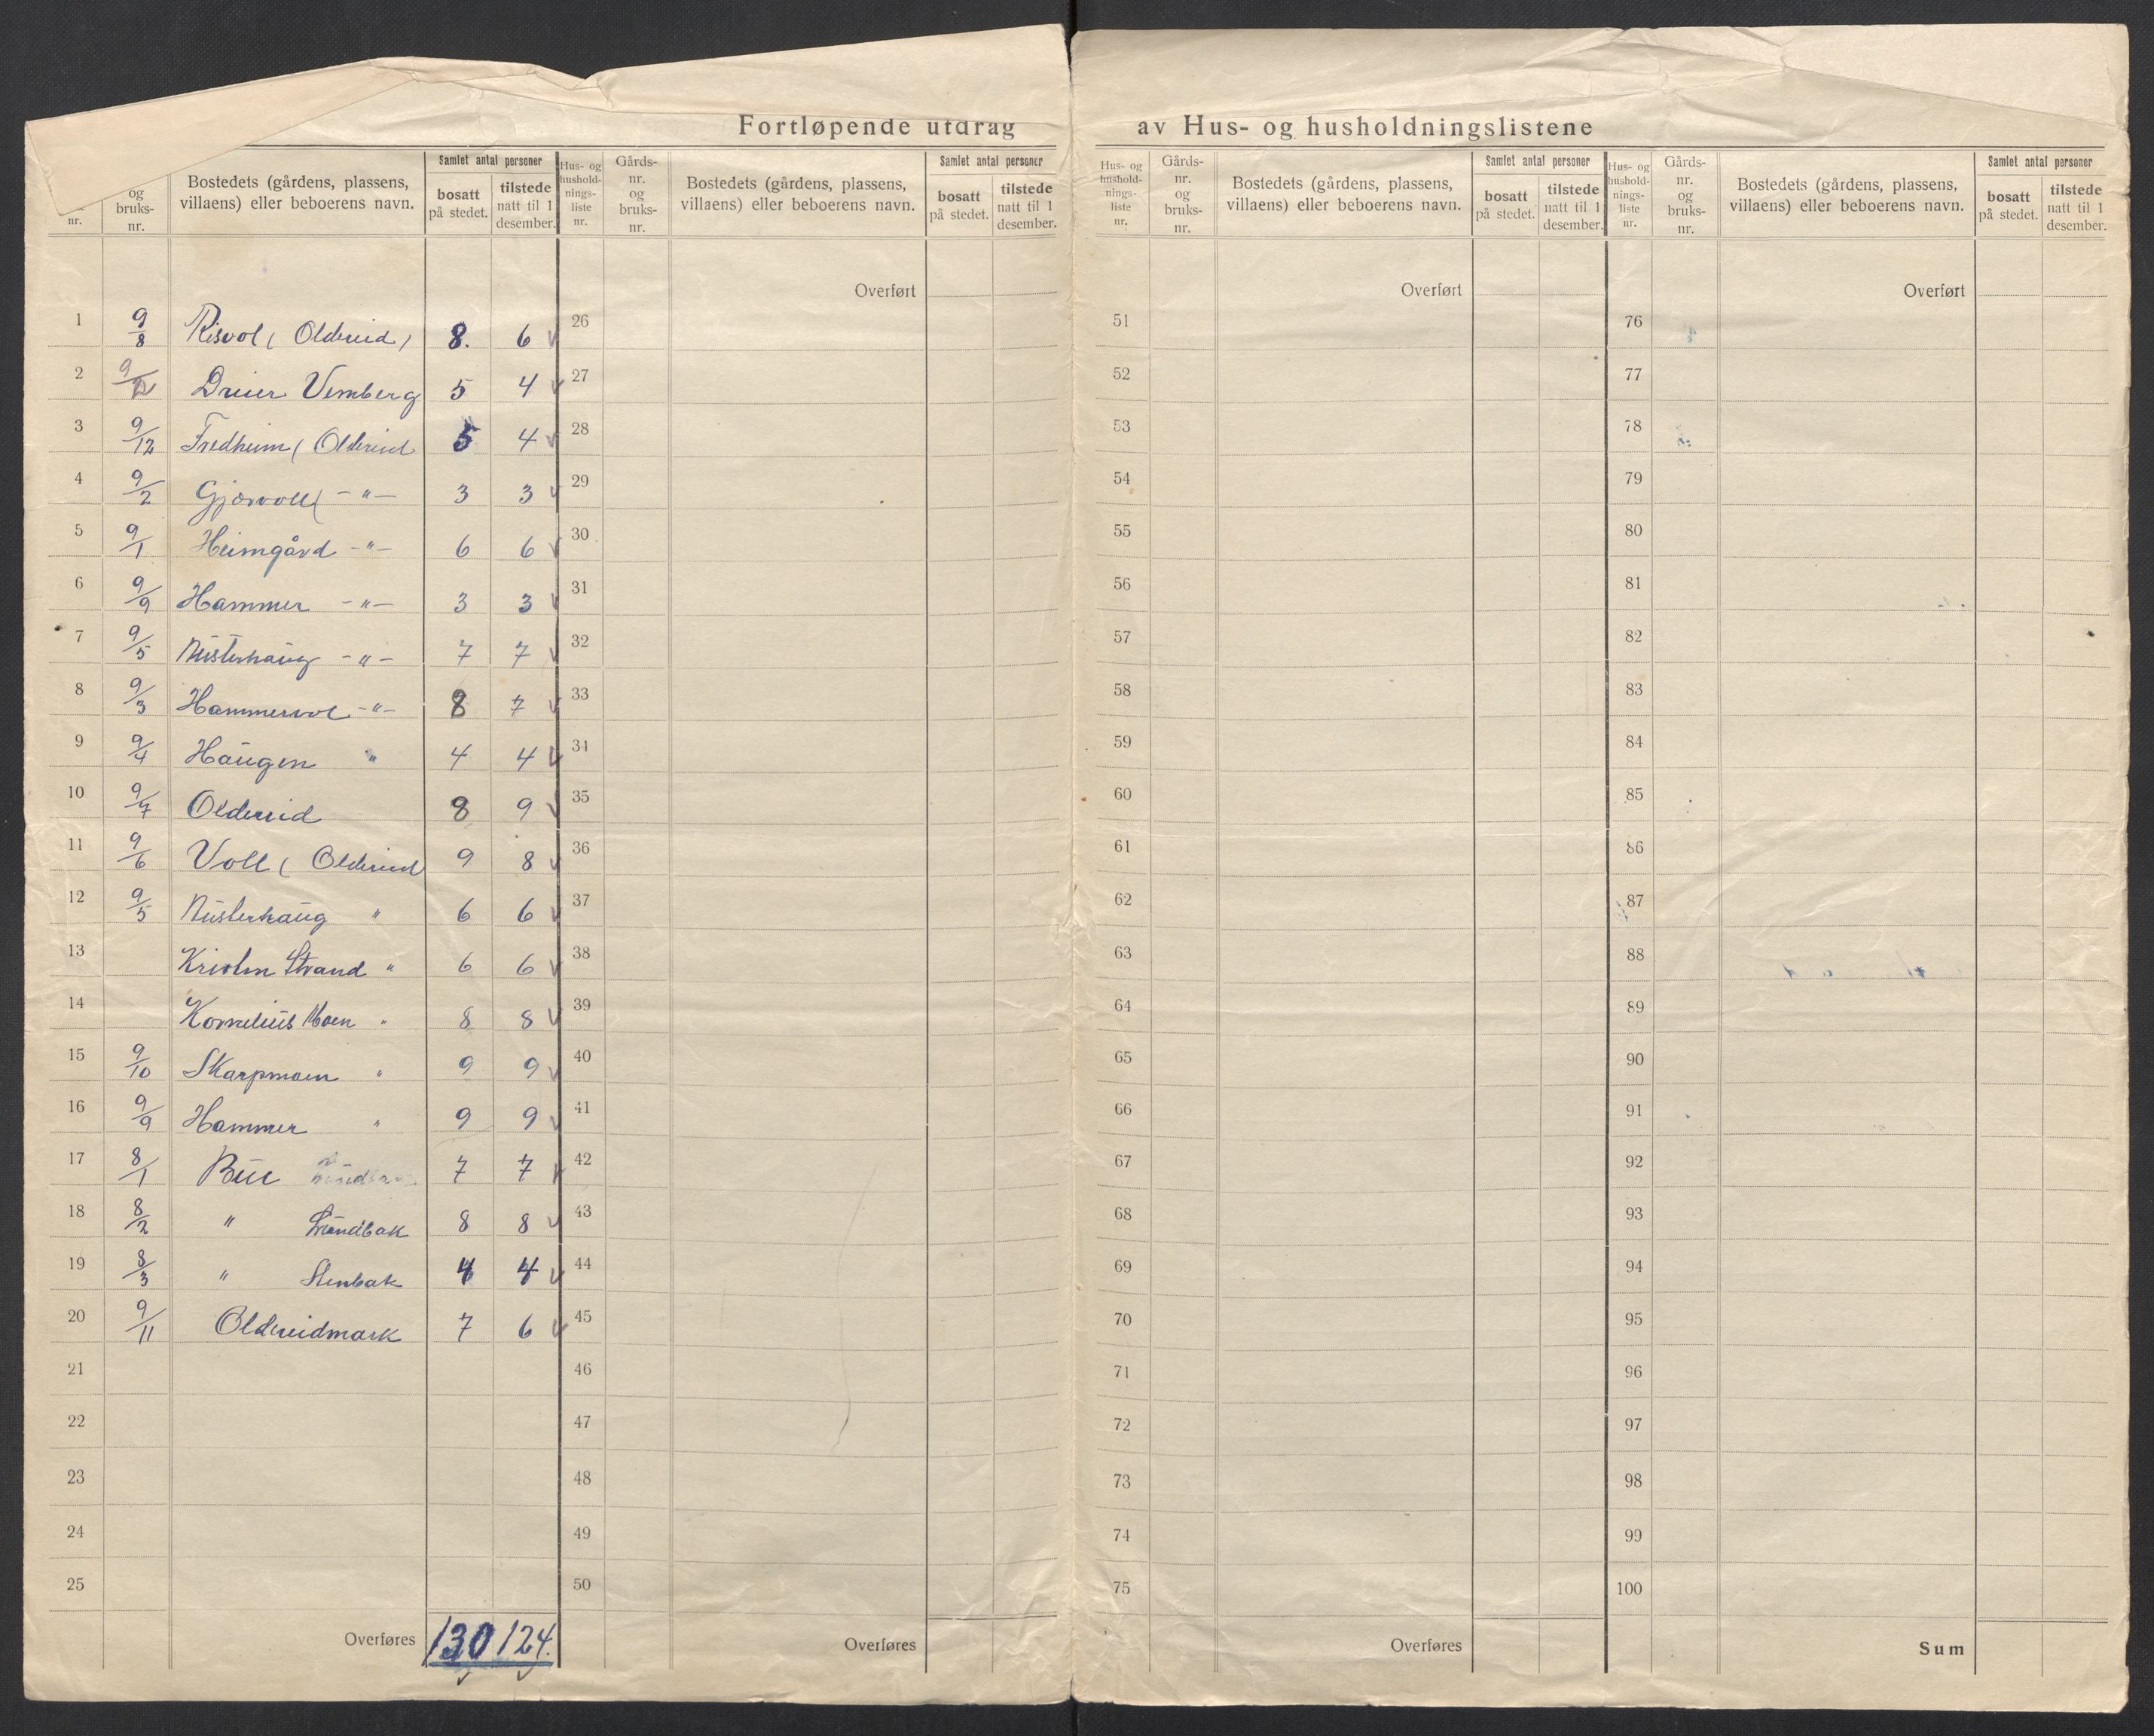 Fortløpende utdrag av Hus- og husholdningslistene
nr. og bruks- nr. Bostedets (gårdens, plassens, villaens) eller beboerens navn. Samlet antal personer bosatt på stedet. tilstede natt til 1 desember.
Hus- og hushold- nings- liste nr. Gårds- nr. og bruks- nr. Bostedets (gårdens, plassens, villaens) eller beboerens navn. Samlet antal personer bosatt på stedet. tilstede natt til 1 desember.
Hus- og hushold- nings- liste nr. Gårds- nr. og bruks- nr. Bostedets (gårdens, plassens, villaens) eller beboerens navn. Samlet antal personer bosatt på stedet. tilstede natt til 1 desember.
Hus- og hushold- nings- liste nr. Gårds- nr. og bruks- nr. Bostedets (gårdens, plassens, villaens) eller beboerens navn. Samlet antal personer bosatt på stedet. tilstede natt til 1 desember.
Overført Overført Overført
1 9/8 Risvol ( Oldereid ) 8. 6 26 51 76
2 Vemberg 5 4 27 52 77
3 9/12 Fredheim ( Oldereid 5 4 28 53 78
4 9/2 Gjærvoll ( -"- 3 3 29 54 79
5 9/1 Heimgård -"- 6 6 30 55 80
6 9/9 Hammer -"- 3 3 31 56 81
7 9/5 Nusterhaug -"- 7 7 32 57 82
8 9/3 Hammervol -"- 8 7 33 58 83
9 9/4 Haugen " 4 4 34 59 84
10 9/7 Oldereid 8 9 35 60 85
11 9/6 Voll ( Oldereid 9 8 36 61 86
12 9/5 Nusterhaug " 6 6 37 62 87
13 Strand " 6 6 38 63 88
14 Kornelius Moen " 8 8 39 64 89
15 9/10 Skarpmoen " 9 9 40 65 90
16 9/9 Hammer " 9 9 41 66 91
17 8/1 Bue 7 7 42 67 92
18 8/2 " 8 8 43 68 93
19 8/3 " Stenbak 4 4 44 69 94
20 9/11 Oldereidmark 7 6 45 70 95
21 46 71 96
22 47 72 97
23 48 73 98
24 49 74 99
25 50 75 100
Overføres 130 124. Overføres Overføres Sum